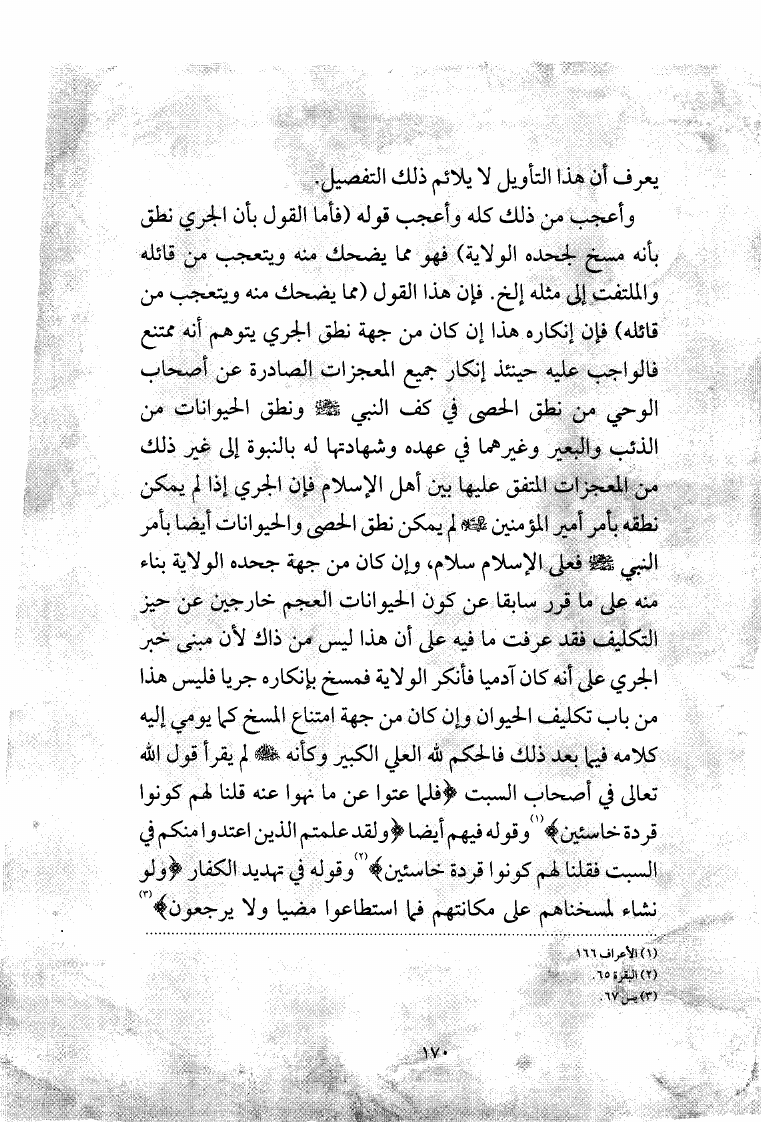 يعرف أن هذا التأويل لا يلائم ذلك التفصيل.
وأعجب من ذلك كله وأعجب قوله (فأما القول بأن الجري نطق
بأنه مسخ لجحده الولاية) فهو مما يضحك منه ويتعجب من قائله
والملتفت إلى مثله إلخ. فإن هذا القول (مما يضحك منه ويتعجب من
قائله) فإن إنكاره هذا إن كان من جهة نطق الجري يتوهم أنه ممتنع
فالواجب عليه حينئذ إنكار جميع المعجزات الصادرة عن أصحاب
الوحي من نطق الحصى في كف النبي ﷺ ونطق الحيوانات من
الذئب والبعير وغيرهما في عهده وشهادتها له بالنبوة إلى غير ذلك
من المعجزات المتفق عليها بين أهل الإسلام فإن الجري إذا لم يمكن
نطقه بأمر أمير المؤمنين لم يمكن نطق الحصى والحيوانات أيضا بأمر
النبي ﷺ فعلى الإسلام سلام، وإن كان من جهة جحده الولاية بناء
منه على ما قرر سابقا عن كون الحيوانات العجم خارجين عن حيز
التكليف فقد عرفت ما فيه على أن هذا ليس من ذاك لأن مبنى خبر
الجري على أنه كان آدميا فأنكر الولاية فمسخ بإنكاره جريا فليس هذا
من باب تكليف الحيوان وإن كان من جهة امتناع المسخ كما يومي إليه
كلامه فيما بعد ذلك فالحكم لله العلي الكبير وكأنه لم يقرأ قول الله
تعالى في أصحاب السبت ﴿فلما عتوا عن ما نهوا عنه قلنا لهم كونوا
قردة خاسئين﴾(١) وقوله فيهم أيضا ﴿ولقد علمتم الذين اعتدوا منكم في
السبت فقلنا لهم كونوا قردة خاسئين﴾(٢) وقوله في تهديد الكفار ﴿ولو
نشاء لمسخناهم على مكانتهم فما استطاعوا مضيا ولا يرجعون﴾(٣)
(١) الأعراف ١٦٦
(٢) البقرة ٦٥.
(٣) يس ٦٧.
١٧٠